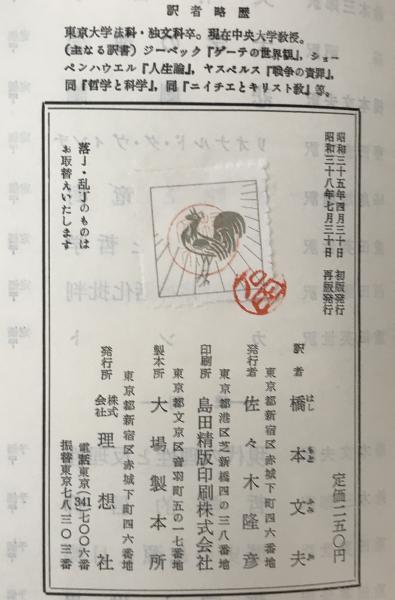 訳者略歴
東京大学法科・独文科卒。現在中央大学教授。
(主なる訳書) ジーベック『ゲーテの世界観』,ショー
ペンハウエル『人生論』,ヤスペルス『戦争の責罪』,
同『哲学と科学』,同『ニイチエとキリスト教』等。
昭和三十五年四月三十日 初版発行
昭和三十八年七月三十日 再版発行
落丁・乱丁のものは
お取替えいたします
定価二五〇円
訳者 橋本文夫
はし もと ふみ お
東京都新宿区赤城下町四六番地
発行者 佐々木隆彦
東京都港区芝新橋四の三八番地
印刷所 島田精版印刷株式会社
東京都文京区音羽町五の一七番地
製本所 大場製本所
東京都新宿区赤城下町四六番地
発行所 株式会社 理想社
電話東京(341)七〇〇六番
振替東京七八三〇三番